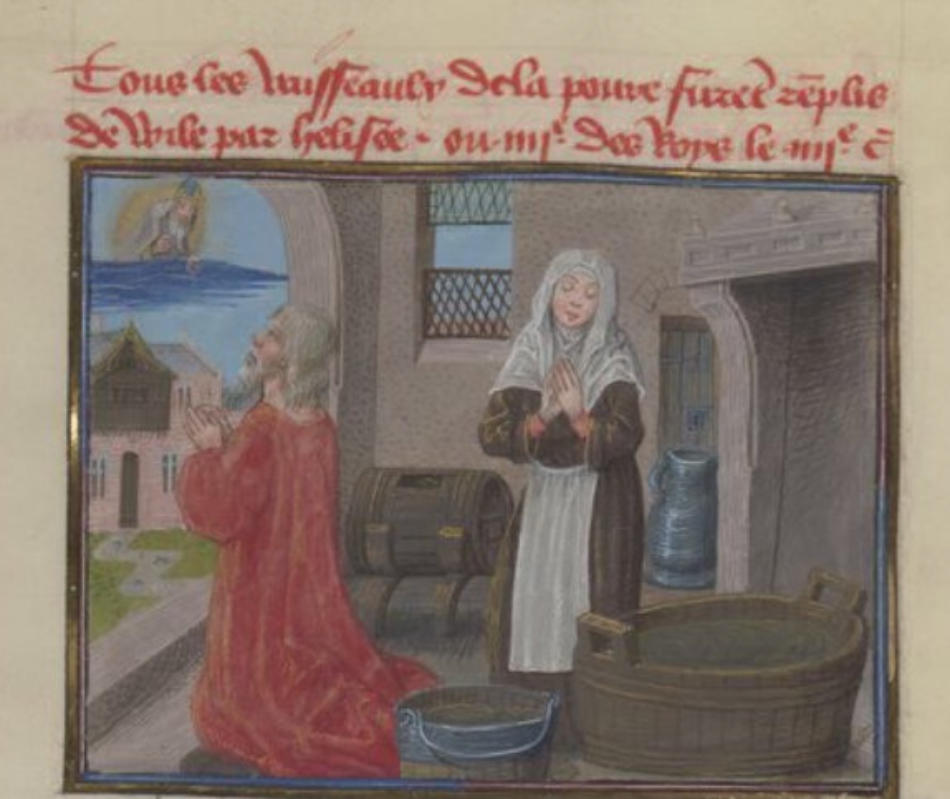 Tous les vaisseaulx de la povre furēt rēplis
de wile par helisee. ou .iiijᵉ. des Roys le .iiijᵉ c̄